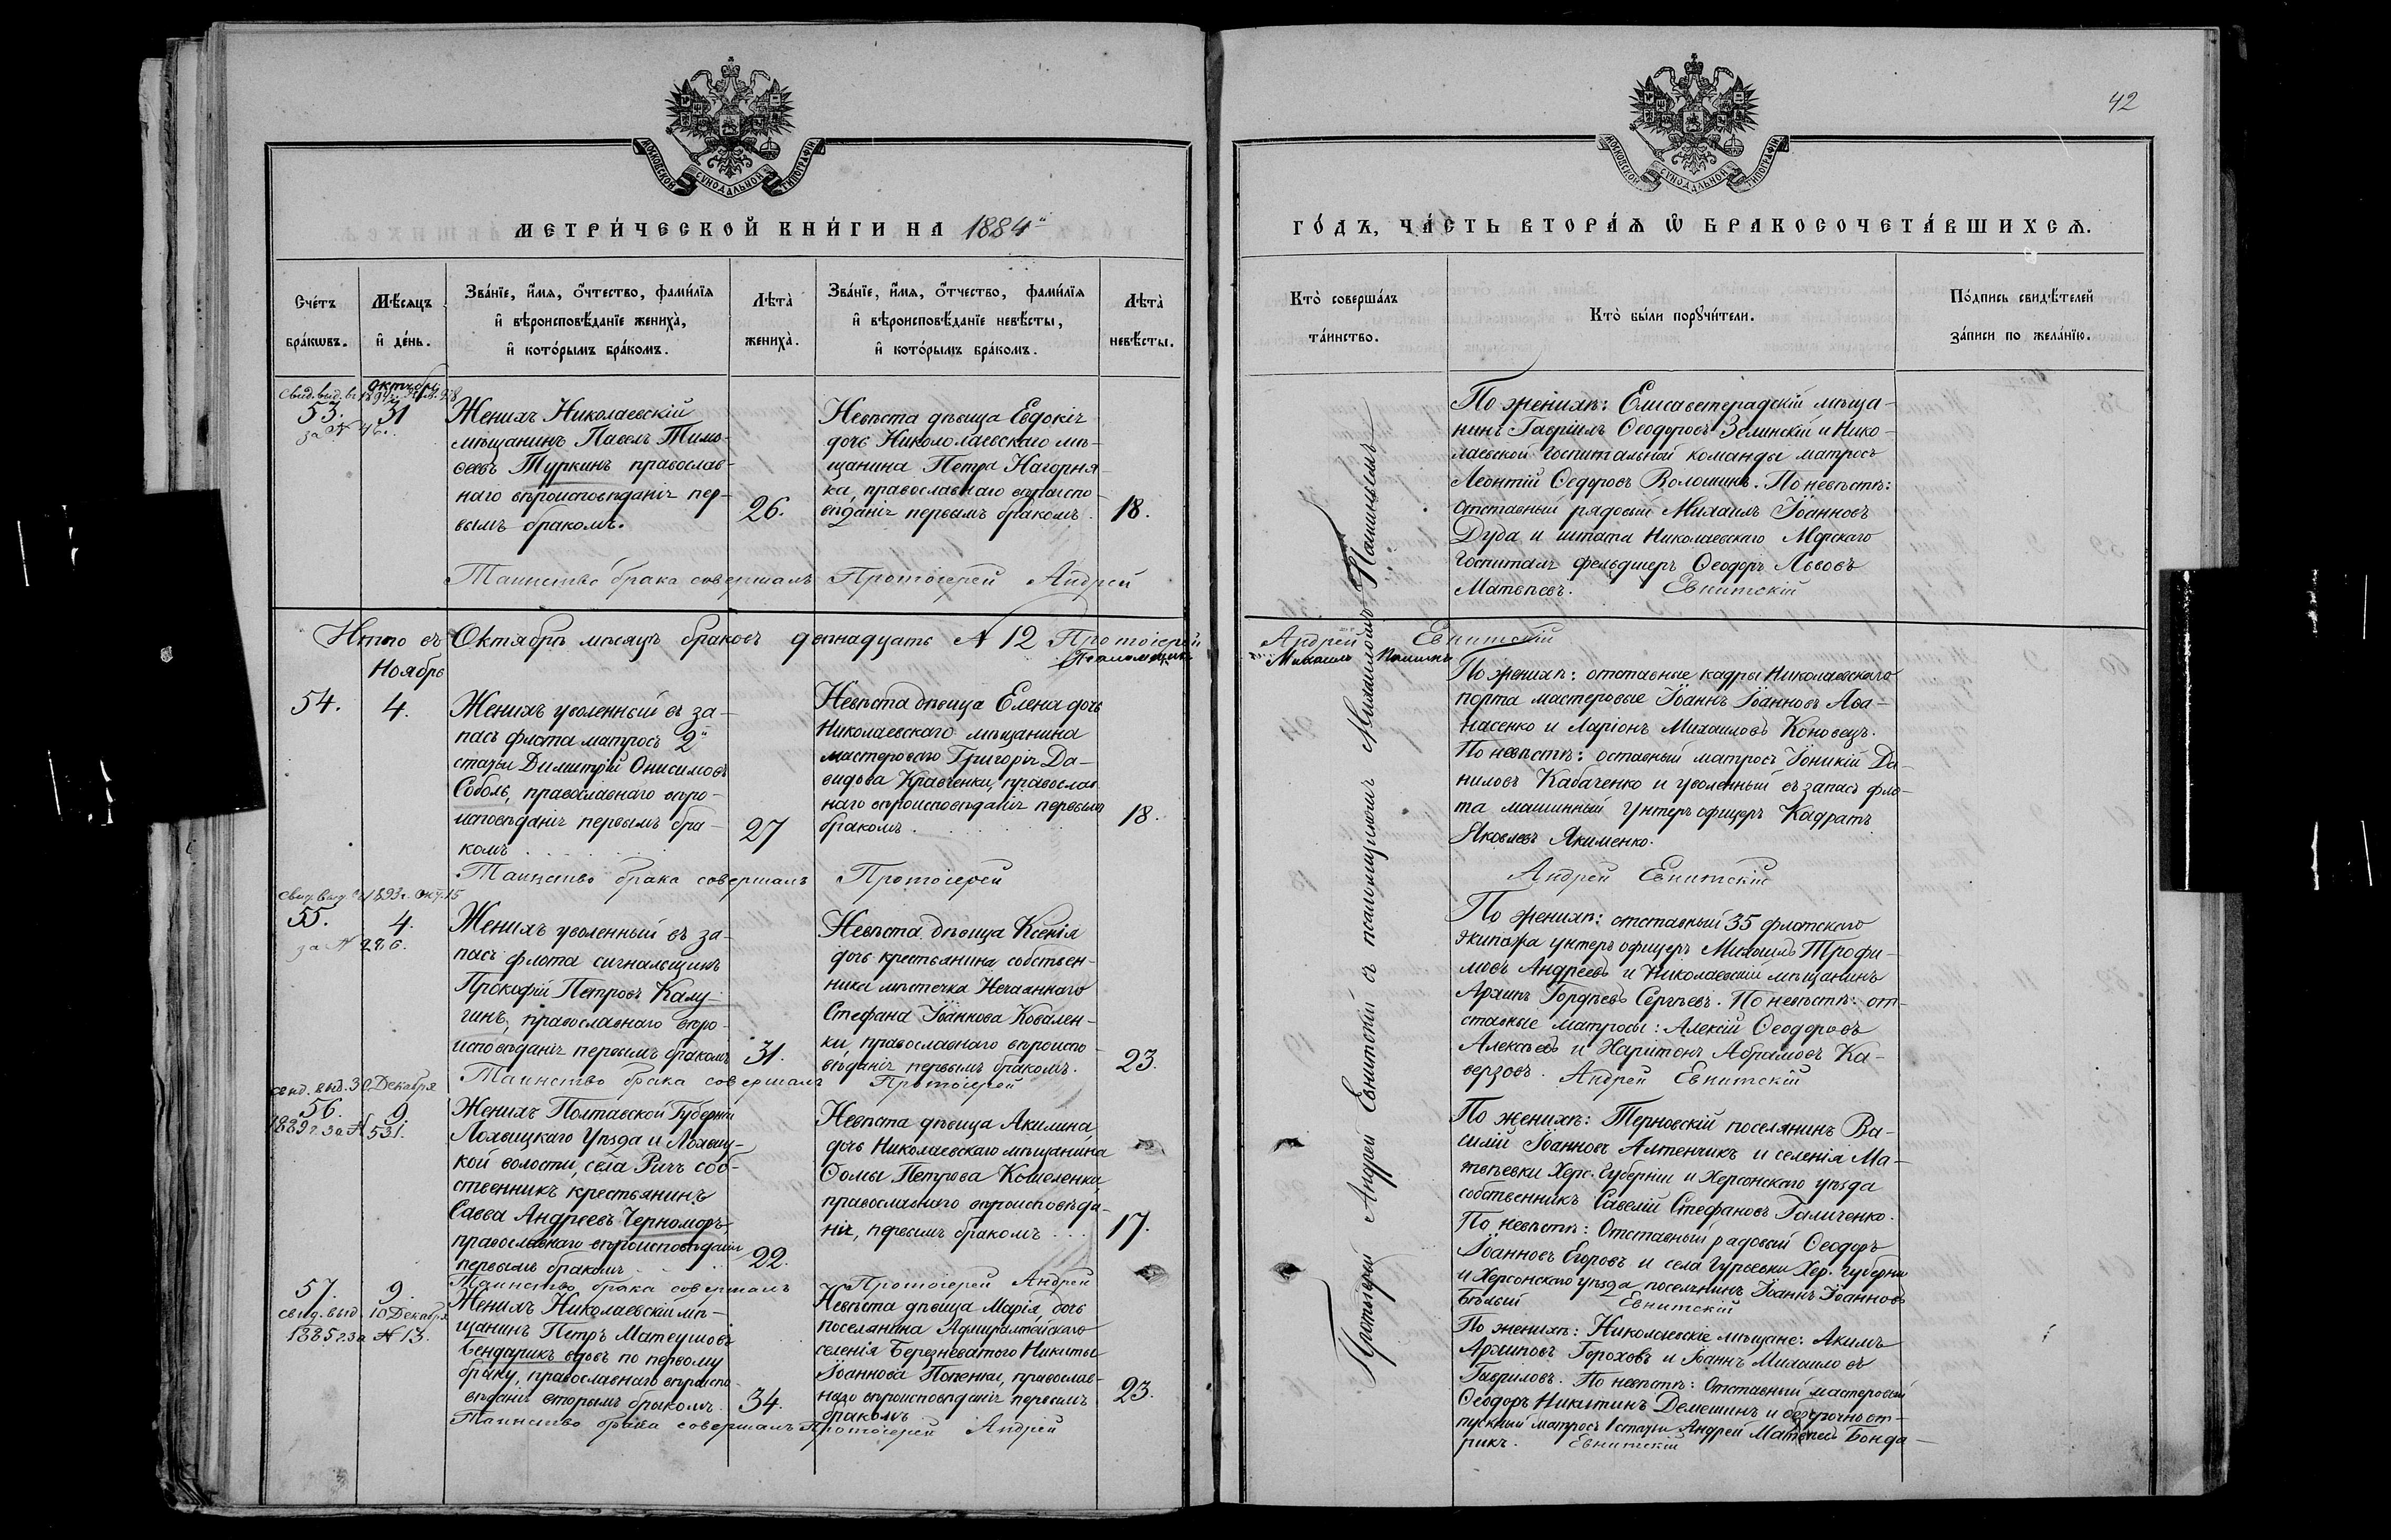 42
МОСКОВСКОЙ СѴНОДАЛЬНОЙ ТИПОГРАФІИ
МОСКОВСКОЙ СѴНОДАЛЬНОЙ ТИПОГРАФІИ
МЕТРИ́ЧЕСКОЙ КНИ́ГИ НА 1884й
ГО́ДЪ, ЧА́СТЬ ВТОРА́Ѧ Ѡ БРАКОСОЧЕТА́ВШИХСѦ.
Сче́тъ
бра́кωвъ.
Мѣ́сяцъ
и҆ де́нь.
Зва́нїе, и҆́мѧ, ѻ҆́тчество, фамилїѧ
и҆ вѣроисповѣ́данїе жениха̀,
и҆ кото́рымъ бра́комъ.
Лѣта̀
жениха̀.
Зва́нїе, и҆́мѧ, ѻ҆́тчество, фамилїѧ
и҆ вѣроисповѣ́данїе невѣ́сты,
и҆ кото́рымъ бра́комъ.
Лѣта̀
невѣ́сты.
Кто̀ соверша́лъ
та́инство.
Кто̀ бы́ли порꙋчи́тели.
По́дпись свидѣ́телей
за́писи по жела́нїю.
Октябрь
53.
за № 46.
31
Женихъ Николаевскій
мѣщанинъ Павелъ Тимо-
ѳеевъ Туркинъ православ-
наго вѣроисповѣданія пер-
вымъ бракомъ.
26.
Невѣста дѣвица Евдокія
дочь Никололаевскаго мѣ-
щанина Петра Нагорня-
ка, православнаго вѣроиспо-
вѣданія первымъ бракомъ.
18.
По женихѣ: Елисаветградскій мѣща-
нинъ Гавріилъ Ѳеодоровъ Зелинскій и Нико-
лаевской госпитальной команды матросъ
Леонтій Ѳедоровъ Волошинъ. По невѣстѣ:
отставный рядовый Михаилъ Іоанновъ
Дуда и штата Николаевскаго Морскаго
госпиталя фельдшеръ Ѳеодоръ Львовъ
Матвѣевъ. Евнитскій
Таинство брака совершалъ Протоіерей Андрей
Итого въ Октябрѣ мѣсяцѣ браковъ двѣнадцать № 12 Протоіерей
Андрей Евнитскій
Псаломщикъ
Михаилъ Пашинъ
Протоіерей Андрей Евнитскій съ псаломщикомъ Михаиломъ Пашинымъ
Ноябрь
54.
4.
Женихъ уволенный въ за-
пасъ флота матросъ 2й
статьи Димитрій Онисимовъ
Соболь, православнаго вѣро-
исповѣданія первымъ бра-
комъ
27
Невѣста дѣвица Елена дочь
Николаевскаго мѣщанина
мастероваго Григорія Да-
видова Кравченки, православ
наго вѣроисповѣданія первымъ
бракомъ.
18.
По женихѣ: отставные кадры Николаевскаго
порта мастеровые Іоаннъ Іоанновъ Аѳа-
насенко и Ларіонъ Михаиловъ Коновецъ.
По невѣстѣ: оставный матросъ Іоникій Да-
ниловъ Кабаченко и уволенный въ запасъ фло-
та машинный унтеръ офицеръ Кадратъ
Яковлевъ Якименко.
Таинство брака совершалъ Протоіерей
Андрей Евнитскій
Свид. выд. 1893 г. Окт. 15
55.
за № 226.
4.
Женихъ уволенный въ за-
пасъ флота сигнальщикъ
Прокофій Петровъ Калу-
гинъ, православнаго вѣро-
исповѣданія первымъ бракомъ
31.
Невѣста дѣвица Ксенія
дочь крестьянина собствен-
ника мѣстечка Нечаяннаго
Стефана Іоаннова Ковален-
ки, православнаго вѣроиспо-
вѣданія первымъ бракомъ.
23.
По женихѣ: отставный 35 флотскаго
экипажа унтеръ офицеръ Михаилъ Трофи-
мовъ Андреевъ и Николаевскій мѣщанинъ
Архипъ Гордѣевъ Сергѣевъ. По невѣстѣ: от-
ставные матросы: Алексій Ѳеодоровъ
Алексѣевъ и Харитонъ Абрамовъ Ка-
верзовъ. Андрей Евнитскій
Таинство брака совершалъ Протоіерей
свид. выд. 30 Декабря
56.
1889 г. за № 531.
9.
Женихъ Полтавской Губерніи
Лохвицкаго Уѣзда и Лохвиц-
кой волости, села Ричъ соб-
ственникъ крестьянинъ
Савва Андреевъ Черноморъ,
православнаго вѣроисповѣданія
первымъ бракомъ
22.
Невѣста дѣвица Акилина
дочь Николаевскаго мѣщанина
Ѳомы Петрова Кошеленка,
православнаго вѣроисповѣда-
нія, первымъ бракомъ
17.
По женихѣ: Терновскій поселянинъ Ва-
силій Іоанновъ Алтенчикъ и селенія Ма-
твѣевки Херс. Губерніи и Херсонскаго уѣзда
собственникъ Савелій Стефановъ Галиченко.
По невѣстѣ: Отставный рядовый Ѳеодоръ
Іоанновъ Егоровъ и села Гурьевки Хер. Губерніи
и Херсонскаго уѣзда поселянинъ Іоаннъ Іоанновъ
Бѣлый Евнитскій
Таинство брака совершалъ Протоіерей Андрей
57.
свид. выд. 10 Декабря
1885 г. за № 13.
9.
Женихъ Николаевскій мѣ-
щанинъ Петръ Матеушовъ
Бендарикъ вдовъ по первому
браку, православнаго вѣроиспо-
вѣданія вторымъ бракомъ.
34.
Невѣста дѣвица Марія, дочь
поселянина Адмиралтейскаго
селенія Березневатого Никиты
Іоаннова Попенки, православ-
наго вѣроисповѣданія первымъ
бракомъ
23.
По женихѣ: Николаевскіе мѣщане: Акимъ
Архиповъ Гороховъ и Іоаннъ Михаиловъ
Гавриловъ. По невѣстѣ: Отставный мастеровый
Ѳеодоръ Никитинъ Демешинъ и безсрочноот-
пускный матросъ 1 статьи Андрей Матвѣевъ Бонда-
рикъ. Евнитскій
Таинство брака совершалъ Протоіерей Андрей